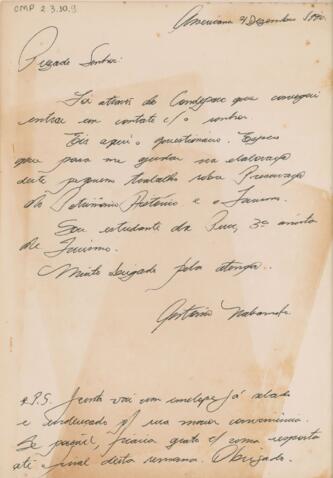 CMP 2.3.10.9
Americana 4 Dezembro
Prezado Senhor:
Foi através do Condepac que consegui
entrar em contato c/o senhor.
Eis aqui o questionário. Espero
que para me ajudar na elaboração
deste pequeno trabalho sobre Preservação
do Patrimônio Histórico e o Turismo.
Sou estudante da Pucc, 3º anista
de Turismo.
Muito Obrigado pela atenção..
P.S. Junto vai um envelope já selado
e endereçado p/ sua maior conveniência.
Se possível, ficaria grato c/ uma resposta
até o final desta semana. Obrigado.